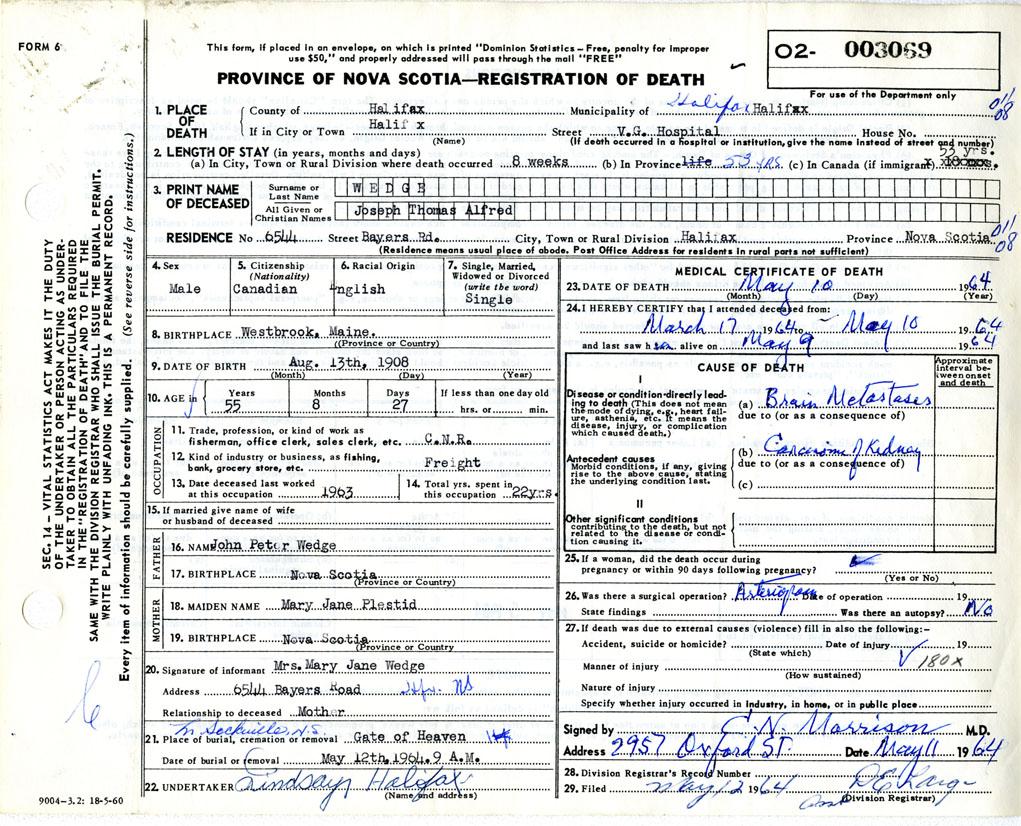 FORM 6
This form, if placed in an envelope, on which is printed "Dominion Statistics – Free, penalty for improper
use $50," and properly addressed will pass through the mail "FREE"
PROVINCE OF NOVA SCOTIA—REGISTRATION OF DEATH
O2- 003069
For use of the Department only
011/08
1. PLACE OF DEATH
County of Halifax Municipality of Halifax Halifax
If in City or Town Halif x Street V.G. Hospital House No.
(Name) (If death occurred in a hospital or institution, give the name instead of street and number)
2. LENGTH OF STAY (in years, months and days) 53 yrs.
(a) In City, Town or Rural Division where death occurred 8 weeks (b) In Province life 53 yrs (c) In Canada (if immigrant)
3. PRINT NAME OF DECEASED
Surname or Last Name WEDGE
All Given or Christian Names Joseph Thomas Alfred
RESIDENCE No 6544 Street Bayers Rd. City, Town or Rural Division Halifax Province Nova Scotia
011/08
(Residence means usual place of abode. Post Office Address for residents in rural parts not sufficient)
4. Sex
Male
5. Citizenship
(Nationality)
Canadian
6. Racial Origin
nglish
7. Single, Married,
Widowed or Divorced
(write the word)
Single
8. BIRTHPLACE Westbrook, Maine.
(Province or Country)
9. DATE OF BIRTH Aug. 13th, 1908
(Month) (Day) (Year)
10. AGE in
Years Months Days If less than one day old
55 8 27 hrs. or min.
OCCUPATION
11. Trade, profession, or kind of work as
fisherman, office clerk, sales clerk, etc. C.N.R.
12. Kind of industry or business, as fishing,
bank, grocery store, etc. Freight
13. Date deceased last worked
at this occupation 1963
14. Total yrs. spent in
this occupation 22yrs.
15. If married give name of wife
or husband of deceased
FATHER
16. NAME John Peter Wedge
17. BIRTHPLACE Nova Scotia
(Province or Country)
MOTHER
18. MAIDEN NAME Mary Jane Plestid
19. BIRTHPLACE Nova Scotia
(Province or Country)
20. Signature of informant Mrs. Mary Jane Wedge
Address 6544 Bayers Road Hfx. NS
Relationship to deceased Mother
Sackville, N.S.
21. Place of burial, cremation or removal Gate of Heaven
Date of burial or removal May 12th, 1964. 9 A.M.
22. UNDERTAKER Lindsay Halifax
(Name and address)
9004–3.2: 18-5-60
MEDICAL CERTIFICATE OF DEATH
23. DATE OF DEATH May 10 1964
(Month) (Day) (Year)
24. I HEREBY CERTIFY that I attended deceased from:
March 17 1964 to May 10 1964
and last saw him alive on May 9 1964
CAUSE OF DEATH
Approximate interval between onset and death
I
Disease or condition directly leading to death (This does not mean the mode of dying, e.g., heart failure, asthenia, etc. It means the disease, injury, or complication which caused death.)
(a) Brain Metastases
due to (or as a consequence of)
Antecedent causes
Morbid conditions, if any, giving rise to the above cause, stating the underlying condition last.
(b) Carcinoma of Kidney
due to (or as a consequence of)
(c)
II
Other significant conditions
contributing to the death, but not related to the disease or condition causing it.
25. If a woman, did the death occur during
pregnancy or within 90 days following pregnancy?
(Yes or No)
26. Was there a surgical operation? Arteriogram Date of operation 19
State findings Was there an autopsy? No
27. If death was due to external causes (violence) fill in also the following:–
Accident, suicide or homicide? Date of injury 19
(State which)
180x
Manner of injury
(How sustained)
Nature of injury
Specify whether injury occurred in industry, in home, or in public place
Signed by C. N. Morrison M.D.
Address 2957 Oxford ST. Date May 11 1964
28. Division Registrar's Record Number
29. Filed May 12 1964
(Division Registrar)
SEC. 14 – VITAL STATISTICS ACT MAKES IT THE DUTY
OF THE UNDERTAKER OR PERSON ACTING AS UNDER-
TAKER TO OBTAIN ALL THE PARTICULARS REQUIRED
IN THE "REGISTRATION OF DEATH" AND TO FILE THE
SAME WITH THE DIVISION REGISTRAR WHO SHALL ISSUE THE BURIAL PERMIT.
WRITE PLAINLY WITH UNFADING INK. THIS IS A PERMANENT RECORD.
Every item of information should be carefully supplied. (See reverse side for instructions.)